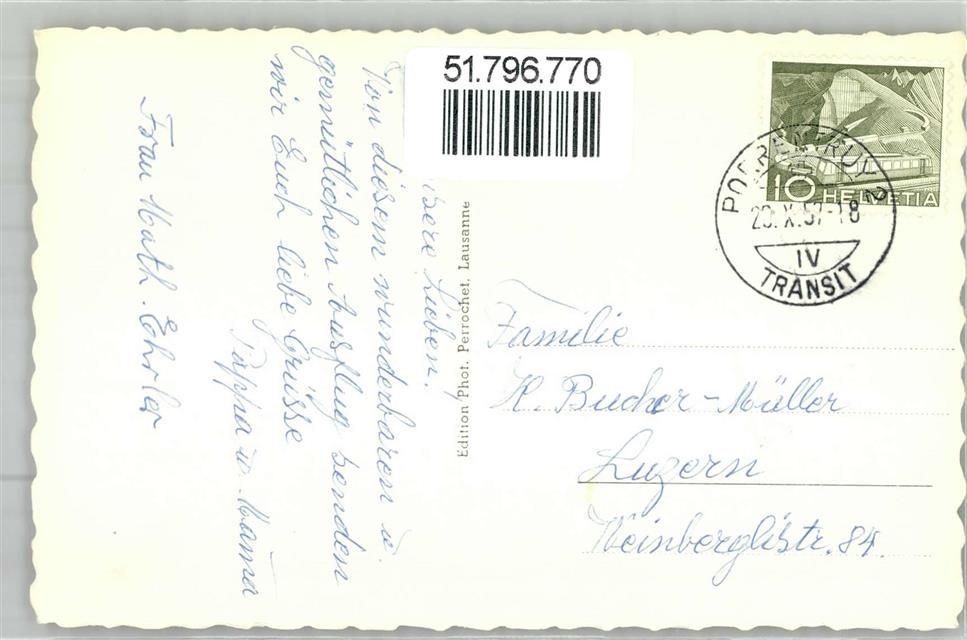 51.796.770
10 HELVETIA
PORRENTRUY 2
23.X.57-18
IV
TRANSIT
Edition Phot. Perrochet, Lausanne
Lieben.
Von diesem wunderbaren u.
gemütlichen Ausflug senden
wir Euch liebe Grüsse
Pappa u. Mama
Frau Math. Ehrler
Familie
K. Bucher-Müller
Luzern
Weinberglistr. 84.